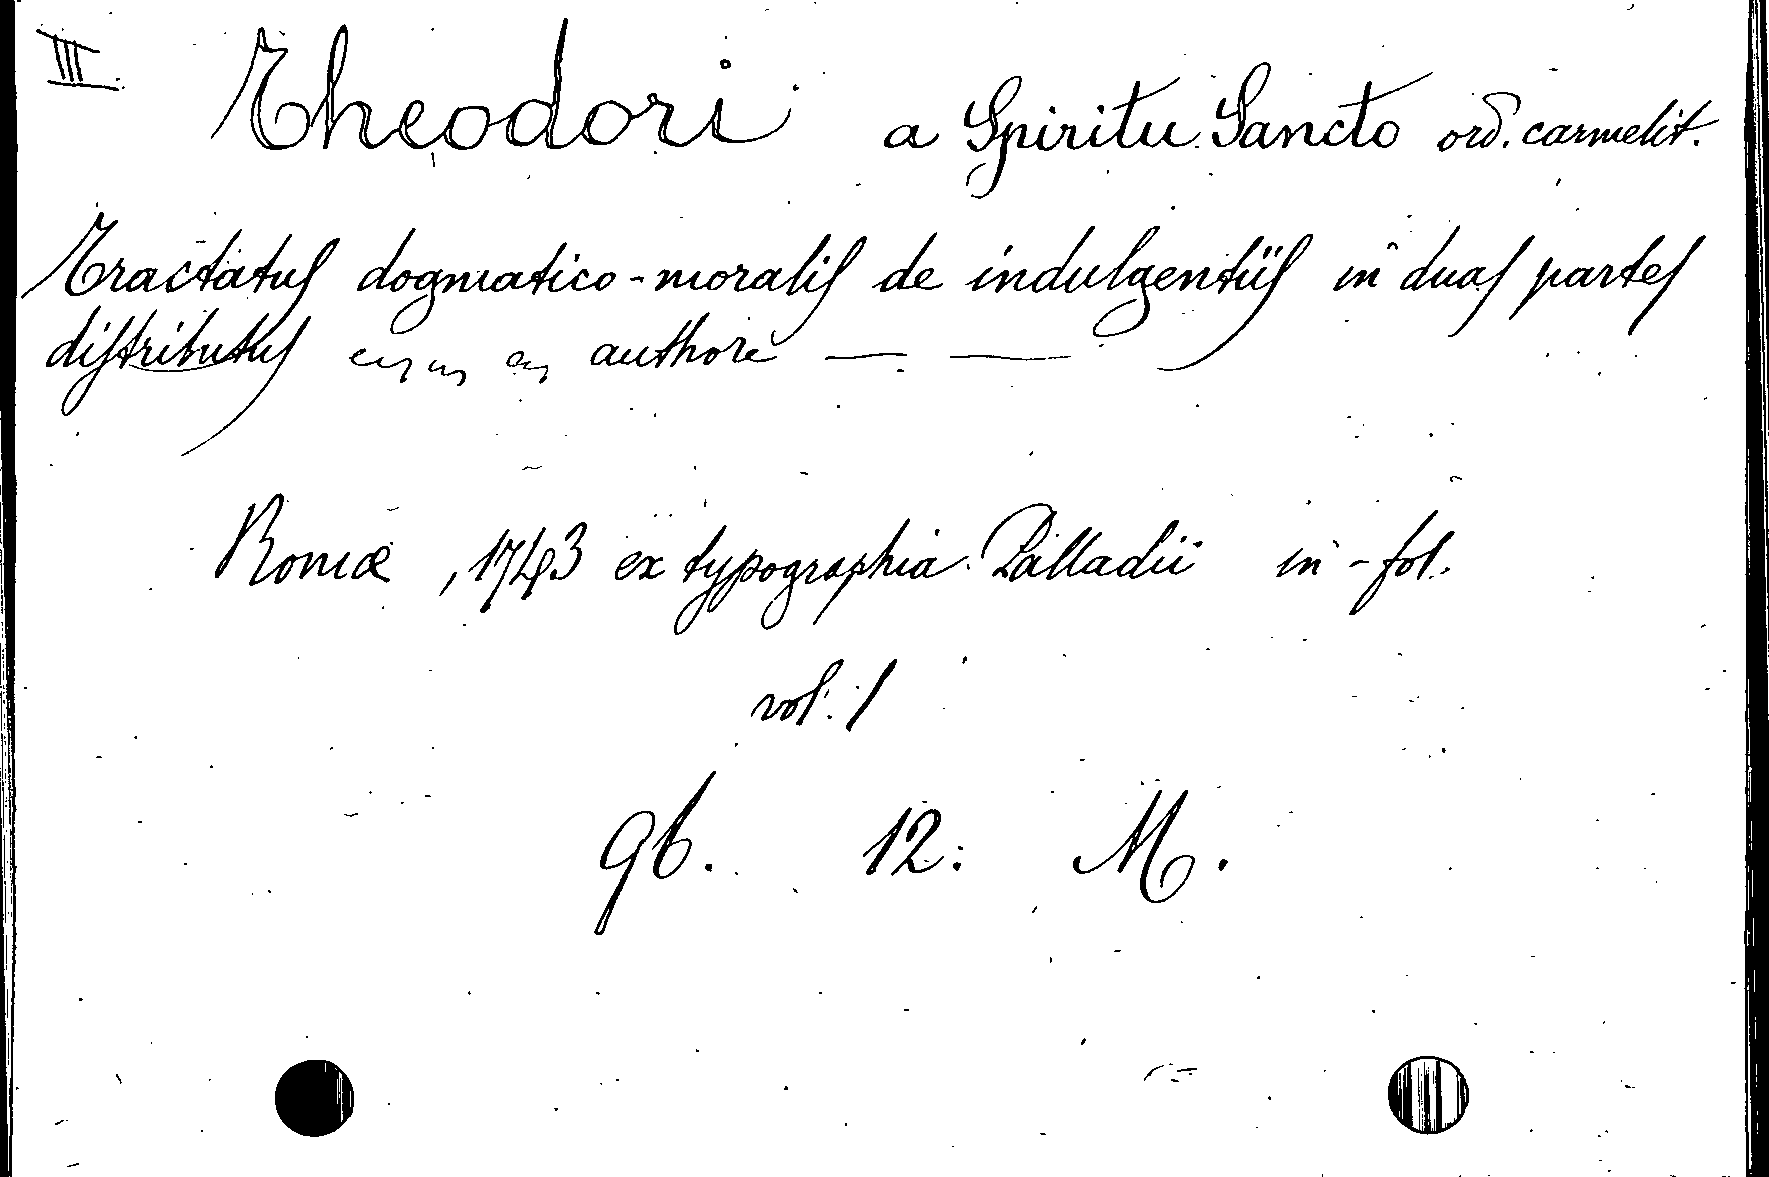 III. Theodori a Spiritu Sancto ord. carmelit.
Tractatus dogmatico-moralis de indulgentiis in duas partes
distributus authore — —
Romæ, 1743 ex typographia Palladii in-fol.
vol. 1
96. 12. M.